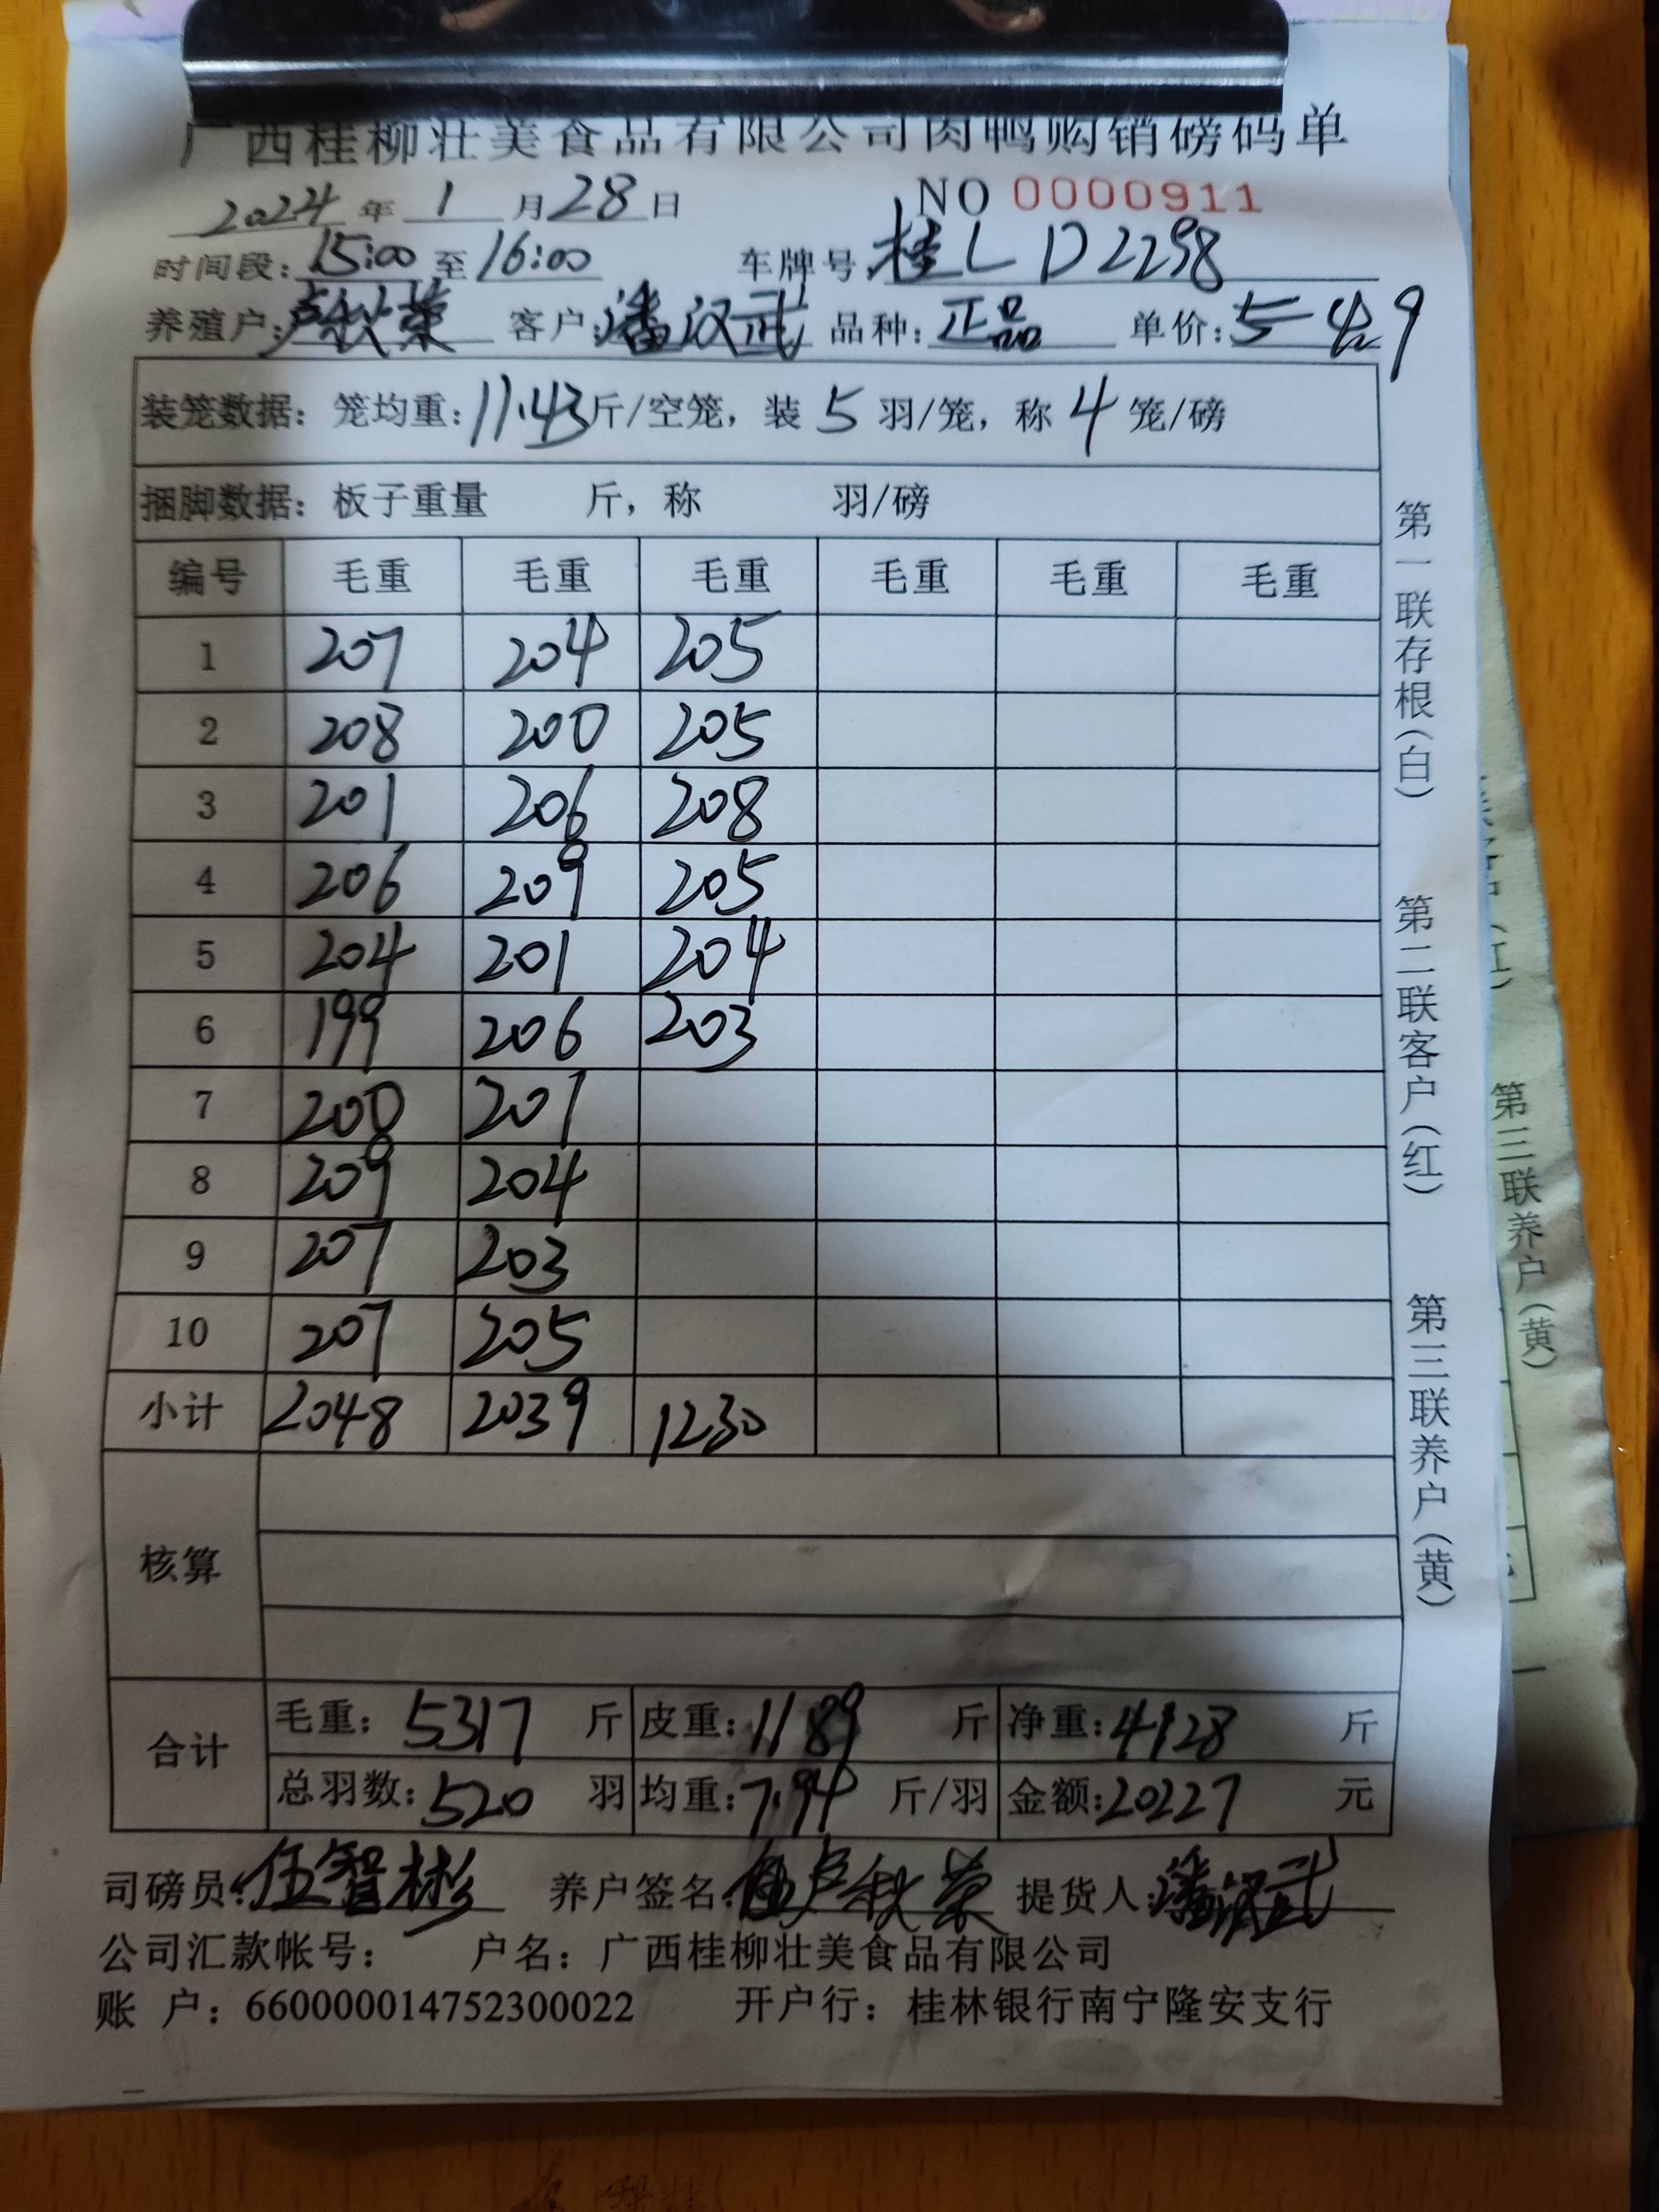 广西桂柳壮美食品有限公司肉鸭购销磅码单
2024年 1 月28日 NO 0000911
时间段: 15:00 至 16:00 车牌号 桂L D2298
养殖户: 卢秋荣 客户: 潘汉武 品种: 正品 单价:
装笼数据: 笼均重: 11.43斤/空笼, 装 5 羽/笼, 称 4 笼/磅
捆脚数据: 板子重量 斤, 称 羽/磅
编号 毛重 毛重 毛重 毛重 毛重 毛重
1 207 204 205
2 208 200 205
3 201 206 208
4 206 209 205
5 204 201 204
6 199 206 203
7 200 201
8 209 204
9 207 203
10 207 205
小计 2048 2039 1230
核算
合计 毛重: 5317 斤 皮重: 1189 斤 净重: 4128 斤
总羽数: 520 羽 均重: 7.94 斤/羽 金额: 20227 元
司磅员: 伍智彬 养户签名: 卢秋荣 提货人: 潘汉武
公司汇款帐号: 户名: 广西桂柳壮美食品有限公司
账 户: 660000014752300022 开户行: 桂林银行南宁隆安支行
第一联存根(白) 第二联客户(红) 第三联养户(黄)
第三联养户(黄)